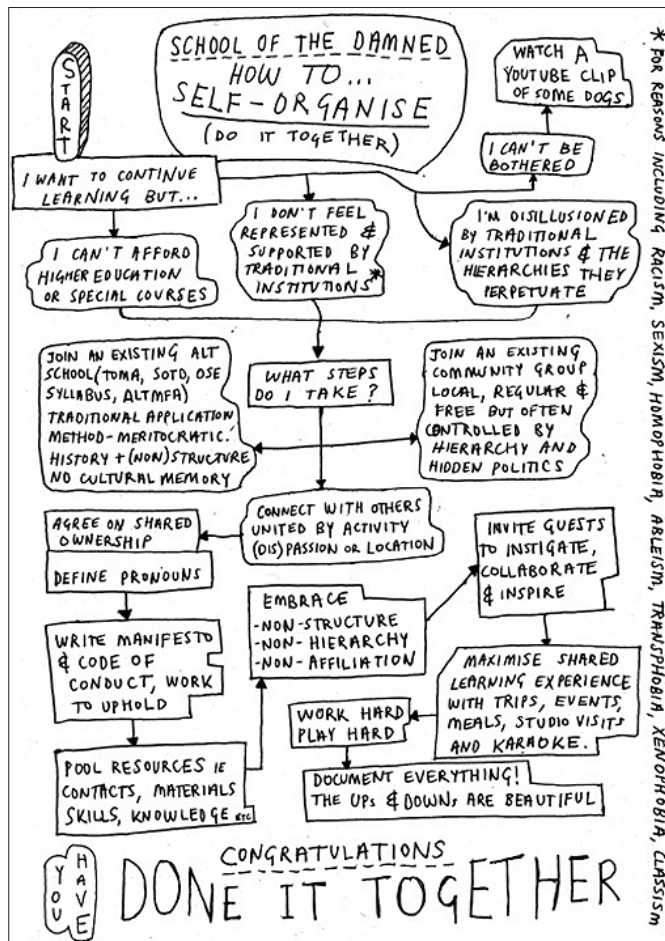 SCHOOL OF THE DAMNED
HOW TO...
SELF-ORGANISE
(DO IT TOGETHER)
START
I WANT TO CONTINUE
LEARNING BUT...
WATCH A
YOUTUBE CLIP
OF SOME DOGS
I CAN'T BE
BOTHERED
I CAN'T AFFORD
HIGHER EDUCATION
OR SPECIAL COURSES
I DON'T FEEL
REPRESENTED &
SUPPORTED BY
TRADITIONAL
INSTITUTIONS*
I'M DISILLUSIONED
BY TRADITIONAL
INSTITUTIONS & THE
HIERARCHIES THEY
PERPETUATE
WHAT STEPS
DO I TAKE?
JOIN AN EXISTING ALT
SCHOOL (TOMA, SOTD, OSE
SYLLABUS, ALTMFA)
TRADITIONAL APPLICATION
METHOD-MERITOCRATIC.
HISTORY + (NON) STRUCTURE
NO CULTURAL MEMORY
JOIN AN EXISTING
COMMUNITY GROUP
LOCAL, REGULAR &
FREE BUT OFTEN
CONTROLLED BY
HIERARCHY AND
HIDDEN POLITICS
CONNECT WITH OTHERS
UNITED BY ACTIVITY
(DIS)PASSION OR LOCATION
AGREE ON SHARED
OWNERSHIP
DEFINE PRONOUNS
WRITE MANIFESTO
& CODE OF
CONDUCT, WORK
TO UPHOLD
POOL RESOURCES IE
CONTACTS, MATERIALS
SKILLS, KNOWLEDGE ETC
EMBRACE
-NON-STRUCTURE
-NON-HIERARCHY
-NON-AFFILIATION
INVITE GUESTS
TO INSTIGATE,
COLLABORATE
& INSPIRE
MAXIMISE SHARED
LEARNING EXPERIENCE
WITH TRIPS, EVENTS,
MEALS, STUDIO VISITS
AND KARAOKE.
WORK HARD
PLAY HARD
DOCUMENT EVERYTHING!
THE UPS & DOWNS ARE BEAUTIFUL
CONGRATULATIONS
YOU HAVE
DONE IT TOGETHER
* FOR REASONS INCLUDING RACISM, SEXISM, HOMOPHOBIA, ABLEISM, TRANSPHOBIA, XENOPHOBIA, CLASSISM